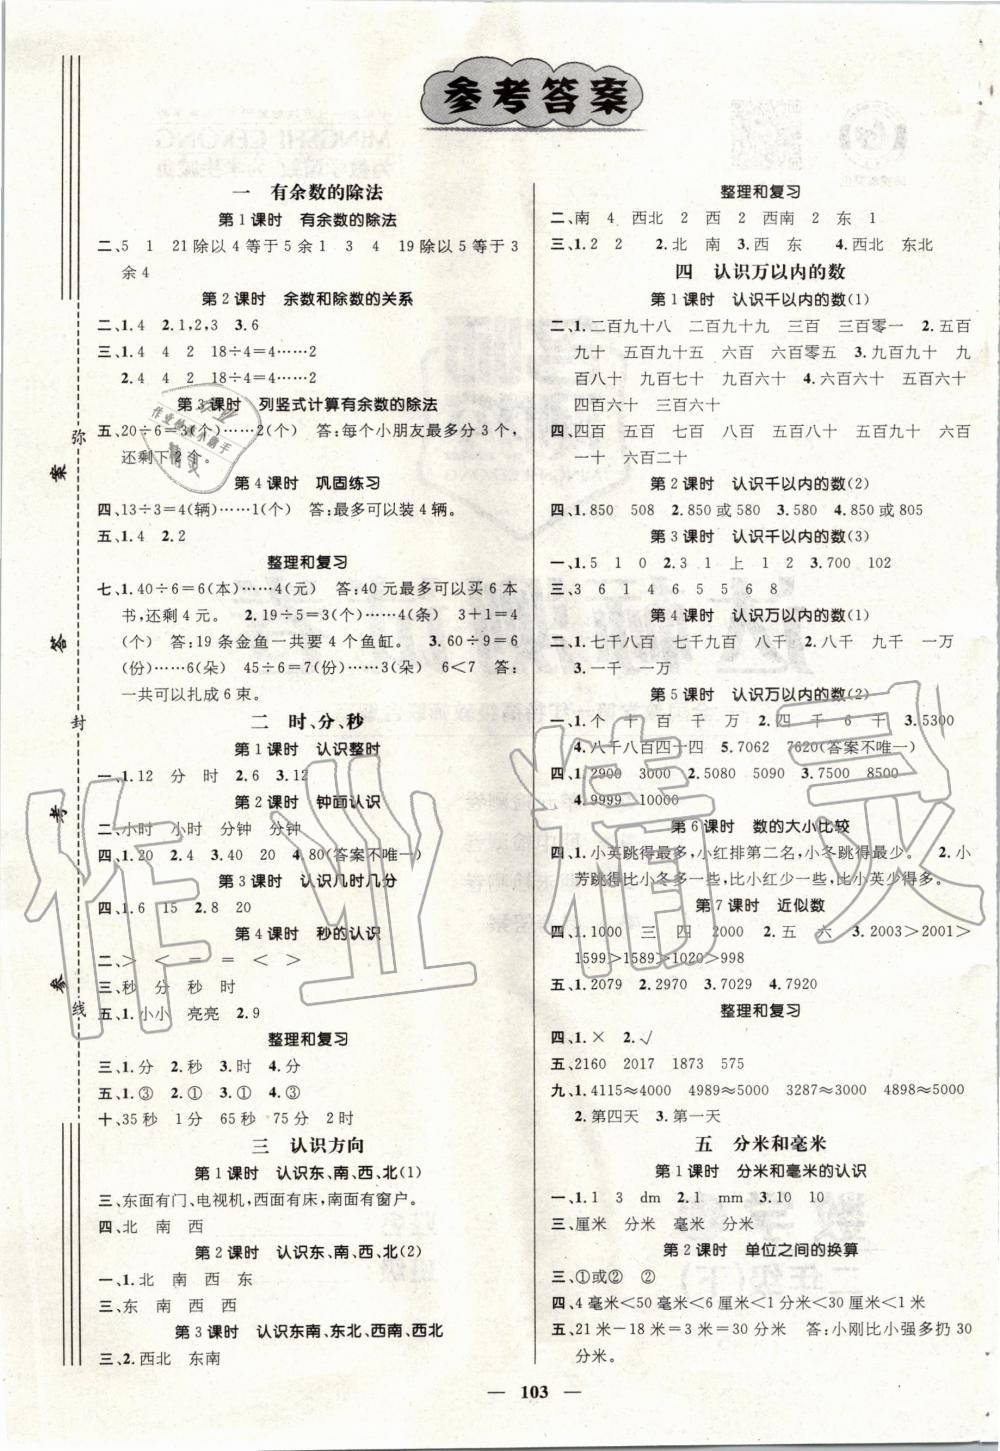 参考答案
一 有余数的除法
第1课时 有余数的除法
二、5 1 21除以4等于5余1 3 4 19除以5等于3
余4
第2课时 余数和除数的关系
二、1.4 2.1,2,3 3.6
三、1.4 4 2 18÷4=4……2
2.4 4 2 18÷4=4……2
第3课时 列竖式计算有余数的除法
五、20÷6=3(个)……2(个) 答:每个小朋友最多分3个,
还剩下2个。
第4课时 巩固练习
四、13÷3=4(辆)……1(个) 答:最多可以装4辆。
五、1.4 2.2
整理和复习
七、1.40÷6=6(本)……4(元) 答:40元最多可以买6本
书,还剩4元。 2.19÷5=3(个)……4(条) 3+1=4
(个) 答:19条金鱼一共要4个鱼缸。 3.60÷9=6
(份)……6(朵) 45÷6=7(份)……3(朵) 6<7 答:
一共可以扎成6束。
二 时、分、秒
第1课时 认识整时
一、1.12 分 时 2.6 3.12
第2课时 钟面认识
二、小时 小时 分钟 分钟
四、1.20 2.4 3.40 20 4.80(答案不唯一)
第3课时 认识几时几分
四、1.6 15 2.8 20
第4课时 秒的认识
二、> < = = < >
三、秒 分 秒 时
五、1.小小 亮亮 2.9
整理和复习
三、1.分 2.秒 3.时 4.分
五、1.③ 2.① 3.① 4.③
十、35秒 1分 65秒 75分 2时
三 认识方向
第1课时 认识东、南、西、北(1)
三、东面有门、电视机,西面有床,南面有窗户。
四、北 南 西
第2课时 认识东、南、西、北(2)
一、1.北 南 西 东
三、东 南 西 西
第3课时 认识东南、东北、西南、西北
三、2.西北 东南
整理和复习
二、南 4 西北 2 西 2 西南 2 东 1
三、1.2 2 2.北 南 3.西 东 4.西北 东北
四 认识万以内的数
第1课时 认识千以内的数(1)
二、1.二百九十八 二百九十九 三百 三百零一 2.五百
九十 五百九十五 六百 六百零五 3.九百九十 九
百八十 九百七十 九百六十 4.六百六十 五百六十
四百六十 三百六十
四、四百 五百 六百 七百 八百 五百九十 六百
一十 六百二十
第2课时 认识千以内的数(2)
四、1.850 508 2.850或580 3.580 4.850或805
第3课时 认识千以内的数(3)
一、1.5 1 0 2.3 1 上 1 2 3.700 102
三、3 1 4 6 5 5 6 8
第4课时 认识万以内的数(1)
二、1.七千八百 七千九百 八千 2.八千 九千 一万
3.一千 一万
第5课时 认识万以内的数(2)
一、1.个 十 百 千 万 2.四 千 6 十 3.5300
4.八千八百四十四 5.7062 7620(答案不唯一)
四、1.2900 3000 2.5080 5090 3.7500 8500
4.9999 10000
第6课时 数的大小比较
四、1.小英跳得最多,小红排第二名,小冬跳得最少。 2.小
芳跳得比小冬多一些,比小红少一些,比小英少得多。
第7课时 近似数
四、1.1000 三 四 2000 2.五 六 3.2003>2001>
1599>1589>1020>998
五、1.2079 2.2970 3.7029 4.7920
整理和复习
四、1.× 2.√
五、2160 2017 1873 575
九、1.4115≈4000 4989≈5000 3287≈3000 4898≈5000
2.第四天 3.第一天
五 分米和毫米
第1课时 分米和毫米的认识
一、1.1 3 dm 2.1 mm 3.10 10
三、厘米 分米 毫米 分米
第2课时 单位之间的换算
三、①或② ②
四、4毫米<50毫米<6厘米<1分米<30厘米<1米
五、21米-18米=3米=30分米 答:小刚比小强多扔30
分米。
弥
封
线
案
答
考
参
作业精灵
103